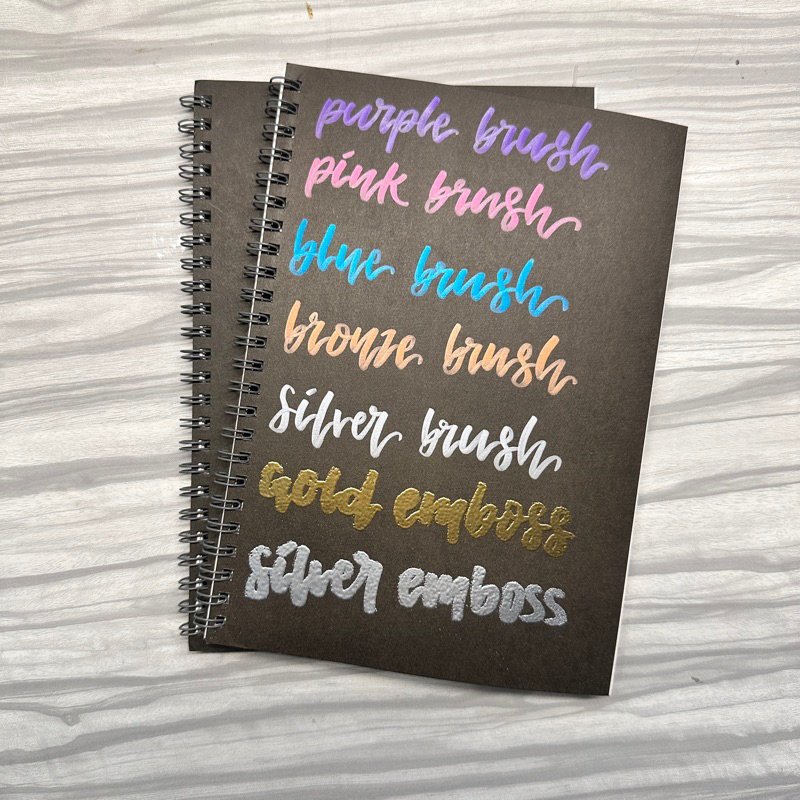 purple brush
pink brush
blue brush
bronze brush
silver brush
gold emboss
silver emboss